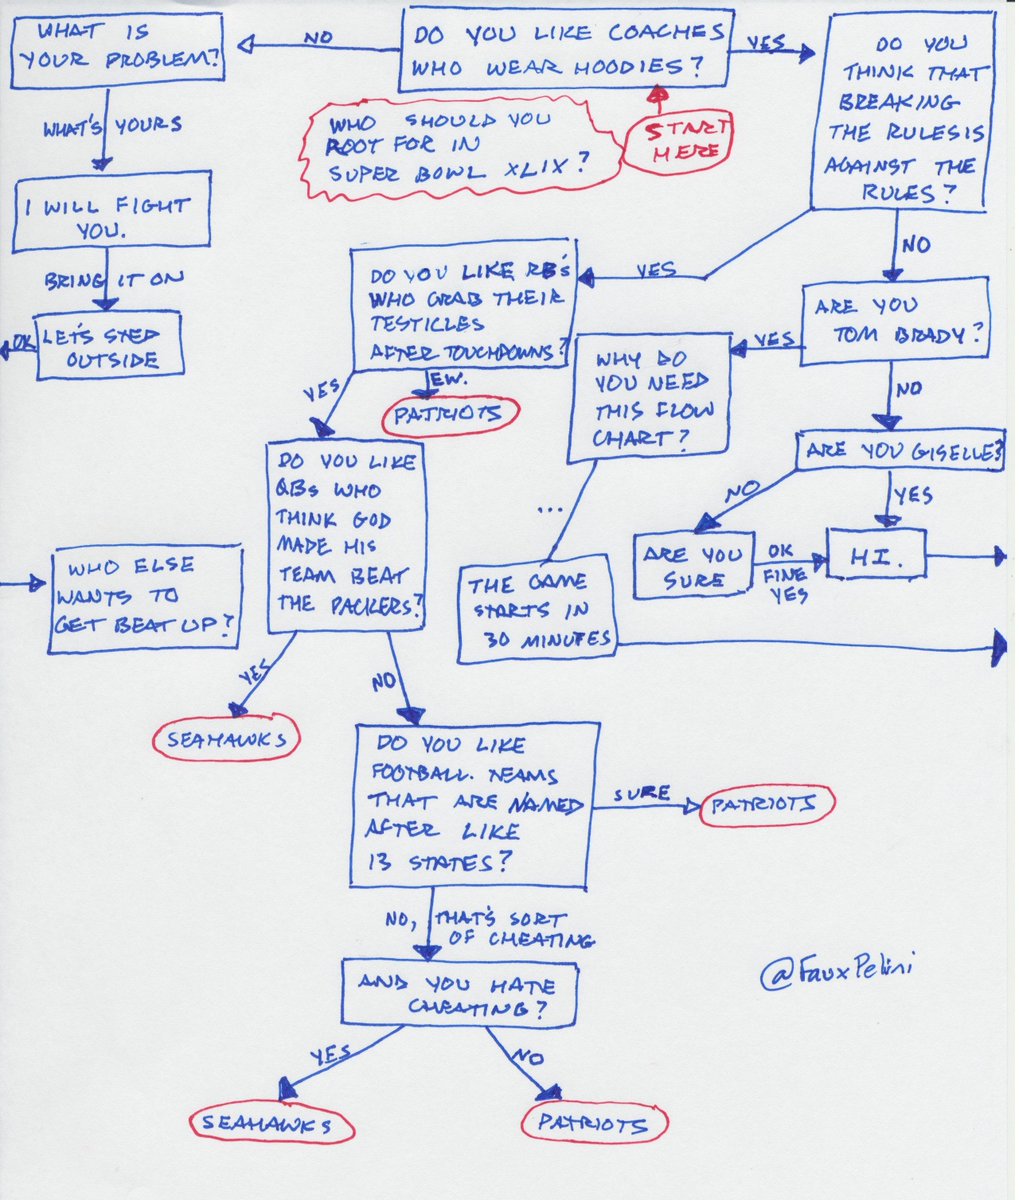 WHAT IS
YOUR PROBLEM?
NO
DO YOU LIKE COACHES
WHO WEAR HOODIES?
YES
DO YOU
THINK THAT
BREAKING
THE RULES IS
AGAINST THE
RULES?
WHO SHOULD YOU
ROOT FOR IN
SUPER BOWL XLIX?
START
HERE
WHAT'S YOURS
I WILL FIGHT
YOU.
BRING IT ON
LET'S STEP
OUTSIDE
OK
YES
NO
DO YOU LIKE RB'S
WHO GRAB THEIR
TESTICLES
AFTER TOUCHDOWNS?
ARE YOU
TOM BRADY?
YES
WHY DO
YOU NEED
THIS FLOW
CHART?
NO
YES
EW.
PATRIOTS
ARE YOU GISELLE?
DO YOU LIKE
QBs WHO
THINK GOD
MADE HIS
TEAM BEAT
THE PACKERS?
NO
YES
...
ARE YOU
SURE
OK
FINE
YES
HI.
WHO ELSE
WANTS TO
GET BEAT UP?
THE GAME
STARTS IN
30 MINUTES
YES
NO
SEAHAWKS
DO YOU LIKE
FOOTBALL TEAMS
THAT ARE NAMED
AFTER LIKE
13 STATES?
SURE
PATRIOTS
NO, THAT'S SORT
OF CHEATING
AND YOU HATE
CHEATING?
@FauxPelini
YES
NO
SEAHAWKS
PATRIOTS